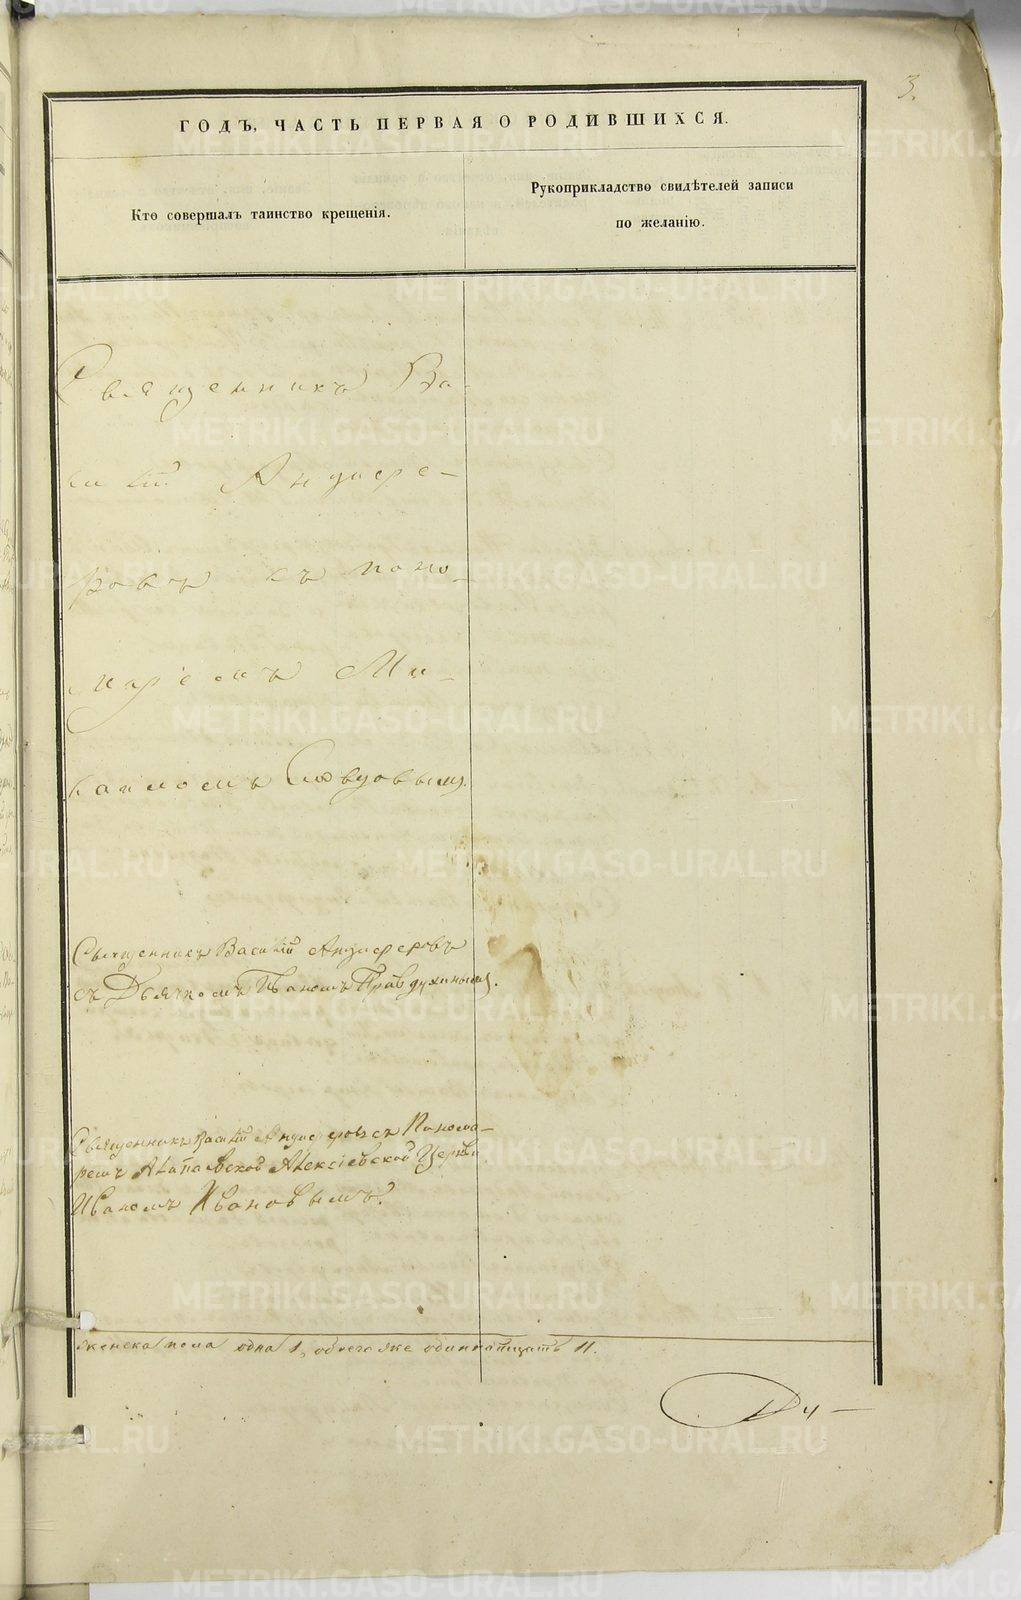 3.
ГОДЪ, ЧАСТЬ ПЕРВАЯ О РОДИВШИХСЯ.
Кто совершалъ таинство крещенія.
Рукоприкладство свидѣтелей записи
по желанію.
Священникъ Ва-
силій Анцифе-
ровъ съ поно-
маремъ Ми-
хаиломъ Словцовымъ.
Священникъ Василій Анцыферовъ
съ Дьячкомъ Иваномъ Правдухинымъ.
Священникъ Василій Анциферовъ съ Понома-
ремъ Алапаевской Алексіевской Церкви
Иваномъ Ивановымъ.
женска пола одна 1, обоего же одиннатцать 11.
METRIKI.GASO-URAL.RU